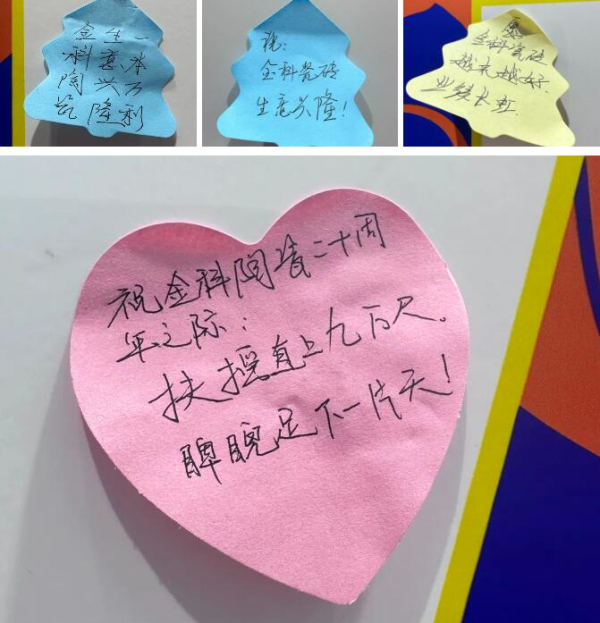 金科陶瓷
生意兴隆
一本万利
祝:
金科瓷砖
生意兴隆!
金科瓷砖
越来越好.
业绩长红
祝金科陶瓷二十周
年之际:
扶摇直上九万尺。
睥睨足下一片天!